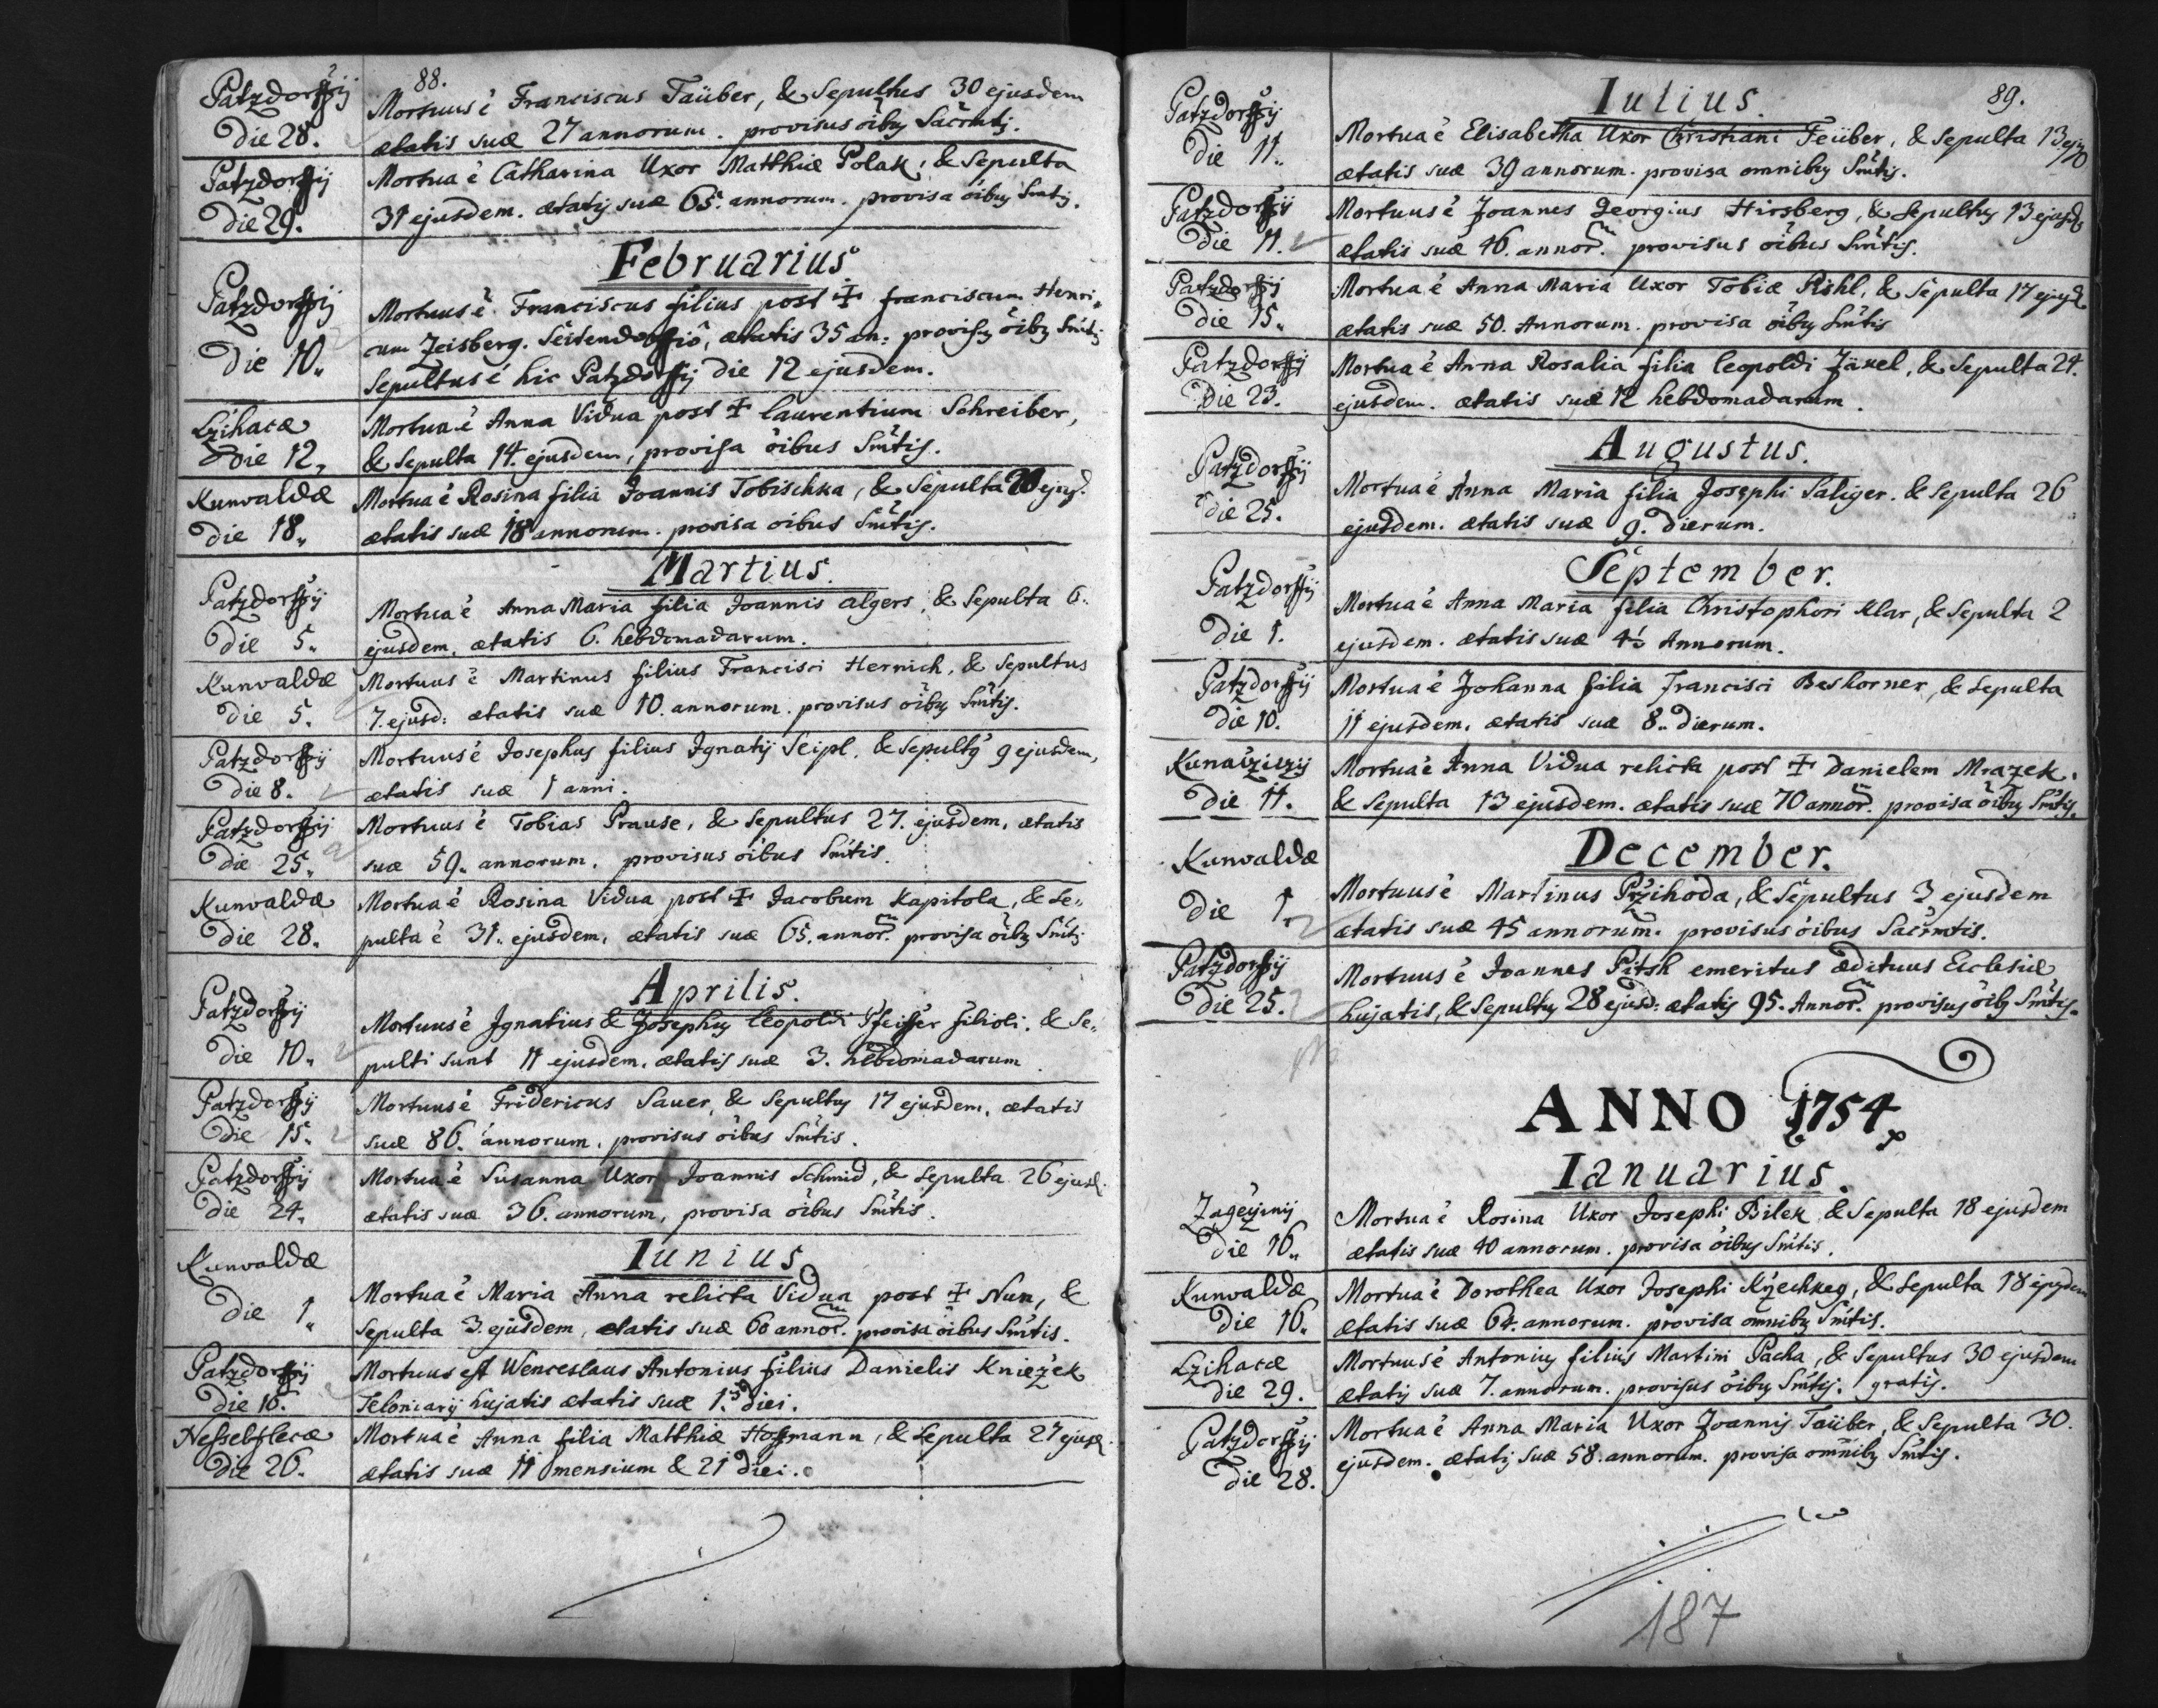 88.
Patzdorffij
Die 28.
Mortuus ē Franciscus Taüber, & Sepultus 30 ejusdem
ætatis suæ 27 annorum. provisus oībꝫ Sacrmtis.
Patzdorffij
Die 29.
Mortua ē Catharina Uxor Matthiæ Polak, & Sepulta
31 ejusdem. ætatis suæ 65. annorum. provisa oībꝫ Smtis.
Februarius
Patzdorffij
Die 10.
Mortuus ē Franciscus filius post ✝ franciscum Henri-
cum Zeisberg. Seitendorffiô, ætatis 35 an: provisꝫ oībꝫ Smtis
Sepultus ē hic Patzdorffij die 12 ejusdem.
Lzihacæ
Die 12.
Mortua ē Anna Vidua post ✝ laurentium Schreiber,
& Sepulta 14. ejusdem, provisa oībus Smtis.
Kunvaldæ
Die 18.
Mortua ē Rosina filia Joannis Tobischka, & Sepulta 20 ejusd.
ætatis suæ 18 annorum. provisa oībus Smtis.
Martius.
Patzdorffij
Die 5.
Mortua ē Anna Maria filia Joannis Algers, & Sepulta 6.
ejusdem, ætatis 6. hebdomadarum.
Kunvaldæ
Die 5.
Mortuus ē Martinus filius Francisci Hernich, & Sepultus
7. ejusd: ætatis suæ 10. annorum. provisus oībꝫ Smtis.
Patzdorffij
Die 8.
Mortuus ē Josephus filius Ignatij Seipl. & Sepultꝫ 9 ejusdem,
ætatis suæ 1 anni.
Patzdorffij
Die 25.
Mortuus ē Tobias Prause, & Sepultus 27. ejusdem, ætatis
suæ 59. annorum. provisus oībus Smtis.
Kunvaldæ
Die 28.
Mortua ē Rosina Vidua post ✝ Jacobum Kapitola, & Se-
pulta ē 31. ejusdem, ætatis suæ 65. annor. provisa oībꝫ Smtis
Aprilis.
Patzdorffij
Die 10.
Mortuus ē Ignatius & Josephus Leopoldi Pfeiffer filioli, & Se-
pulti sunt 11 ejusdem, ætatis suæ 3. hebdomadarum.
Patzdorffij
Die 15.
Mortuus ē Fridericus Sauer, & Sepultus 17 ejusdem, ætatis
suæ 86. annorum. provisus oībus Smtis.
Patzdorffij
Die 24.
Mortua ē Susanna Uxor Joannis Schmid, & Sepulta 26 ejusd.
ætatis suæ 36. annorum, provisa oībus Smtis.
Iunius
Kunvaldæ
Die 1.
Mortua ē Maria Anna relicta Vidua post ✝ Nun, &
Sepulta 3. ejusdem, ætatis suæ 60 annor. provisa oībus Smtis.
Patzdorffij
Die 16.
Mortuus est Wenceslaus Antonius filius Danielis Kniežek
Teloniarij hujatis ætatis suæ 1. diei.
Nesselfleræ
Die 26.
Mortua ē Anna filia Matthiæ Hoffmann, & Sepulta 27 ejusd.
ætatis suæ 11 mensium & 21 diei.
89.
Iulius
Patzdorffij
Die 11.
Mortua ē Elisabetha Uxor Christiani Teüber, & Sepulta 13 ejꝫ
ætatis suæ 39 annorum. provisa omnibꝫ Smtis.
Patzdorffij
Die 11.
Mortuus ē Joannes Georgius Hirsberg, & Sepultus 13 ejusd.
ætatis suæ 46. annor. provisus oībus Smtis.
Patzdorffij
Die 15.
Mortua ē Anna Maria Uxor Tobiæ Pishl, & Sepulta 17 ejusd.
ætatis suæ 50. Annorum. provisa oībꝫ Smtis
Patzdorffij
Die 23.
Mortua ē Anna Rosalia filia Leopoldi Jäxel, & Sepulta 24.
ejusdem. ætatis suæ 12 hebdomadarum.
Augustus.
Patzdorffij
die 25.
Mortua ē Anna Maria filia Josephi Saliger. & Sepulta 26
ejusdem. ætatis suæ 9. dierum.
September.
Patzdorffij
Die 1.
Mortua ē Anna Maria filia Christophori Klar, & Sepulta 2
ejusdem. ætatis suæ 4½ Annorum.
Patzdorffij
Die 10.
Mortua ē Johanna filia Francisci Beshorner, & Sepulta
11 ejusdem, ætatis suæ 8. dierum.
Kunaiziczij
Die 11.
Mortua ē Anna Vidua relicta post ✝ Danielem Mrazek.
& Sepulta 13 ejusdem. ætatis suæ 70 annor. provisa oībꝫ Smtis.
December.
Kunvaldæ
Die 1
Mortuus ē Martinus Pržihoda, & Sepultus 3 ejusdem
ætatis suæ 45 annorum. provisus oībus Sacrmtis.
Patzdorffij
Die 25.
Mortuus ē Joannes Pitsh emeritus ædituus Ecclesiæ
hujatis, & Sepultus 28 ejusd: ætatis 95. Annor. provisus oībꝫ Smtis.
ANNO 1754
Ianuarius.
Zageijmij
Die 16.
Mortua ē Rosina Uxor Josephi Bilek & Sepulta 18 ejusdem
ætatis suæ 40 annorum. provisa oībus Smtis.
Kunvaldæ
Die 16.
Mortua ē Dorothea Uxor Josephi Kržechkeg, & Sepulta 18 ejusdem
ætatis suæ 64. annorum. provisa omnibꝫ Smtis.
Lzihacæ
Die 29.
Mortuus ē Antonius filius Martini Pacha, & Sepultus 30 ejusdem
ætatis suæ 7. annorum. provisus oībus Smtis. gratis.
Patzdorffij
Die 28.
Mortua ē Anna Maria Uxor Joannis Taüber, & Sepulta 30.
ejusdem. ætatis suæ 58. annorum. provisa omnibꝫ Smtis.
187